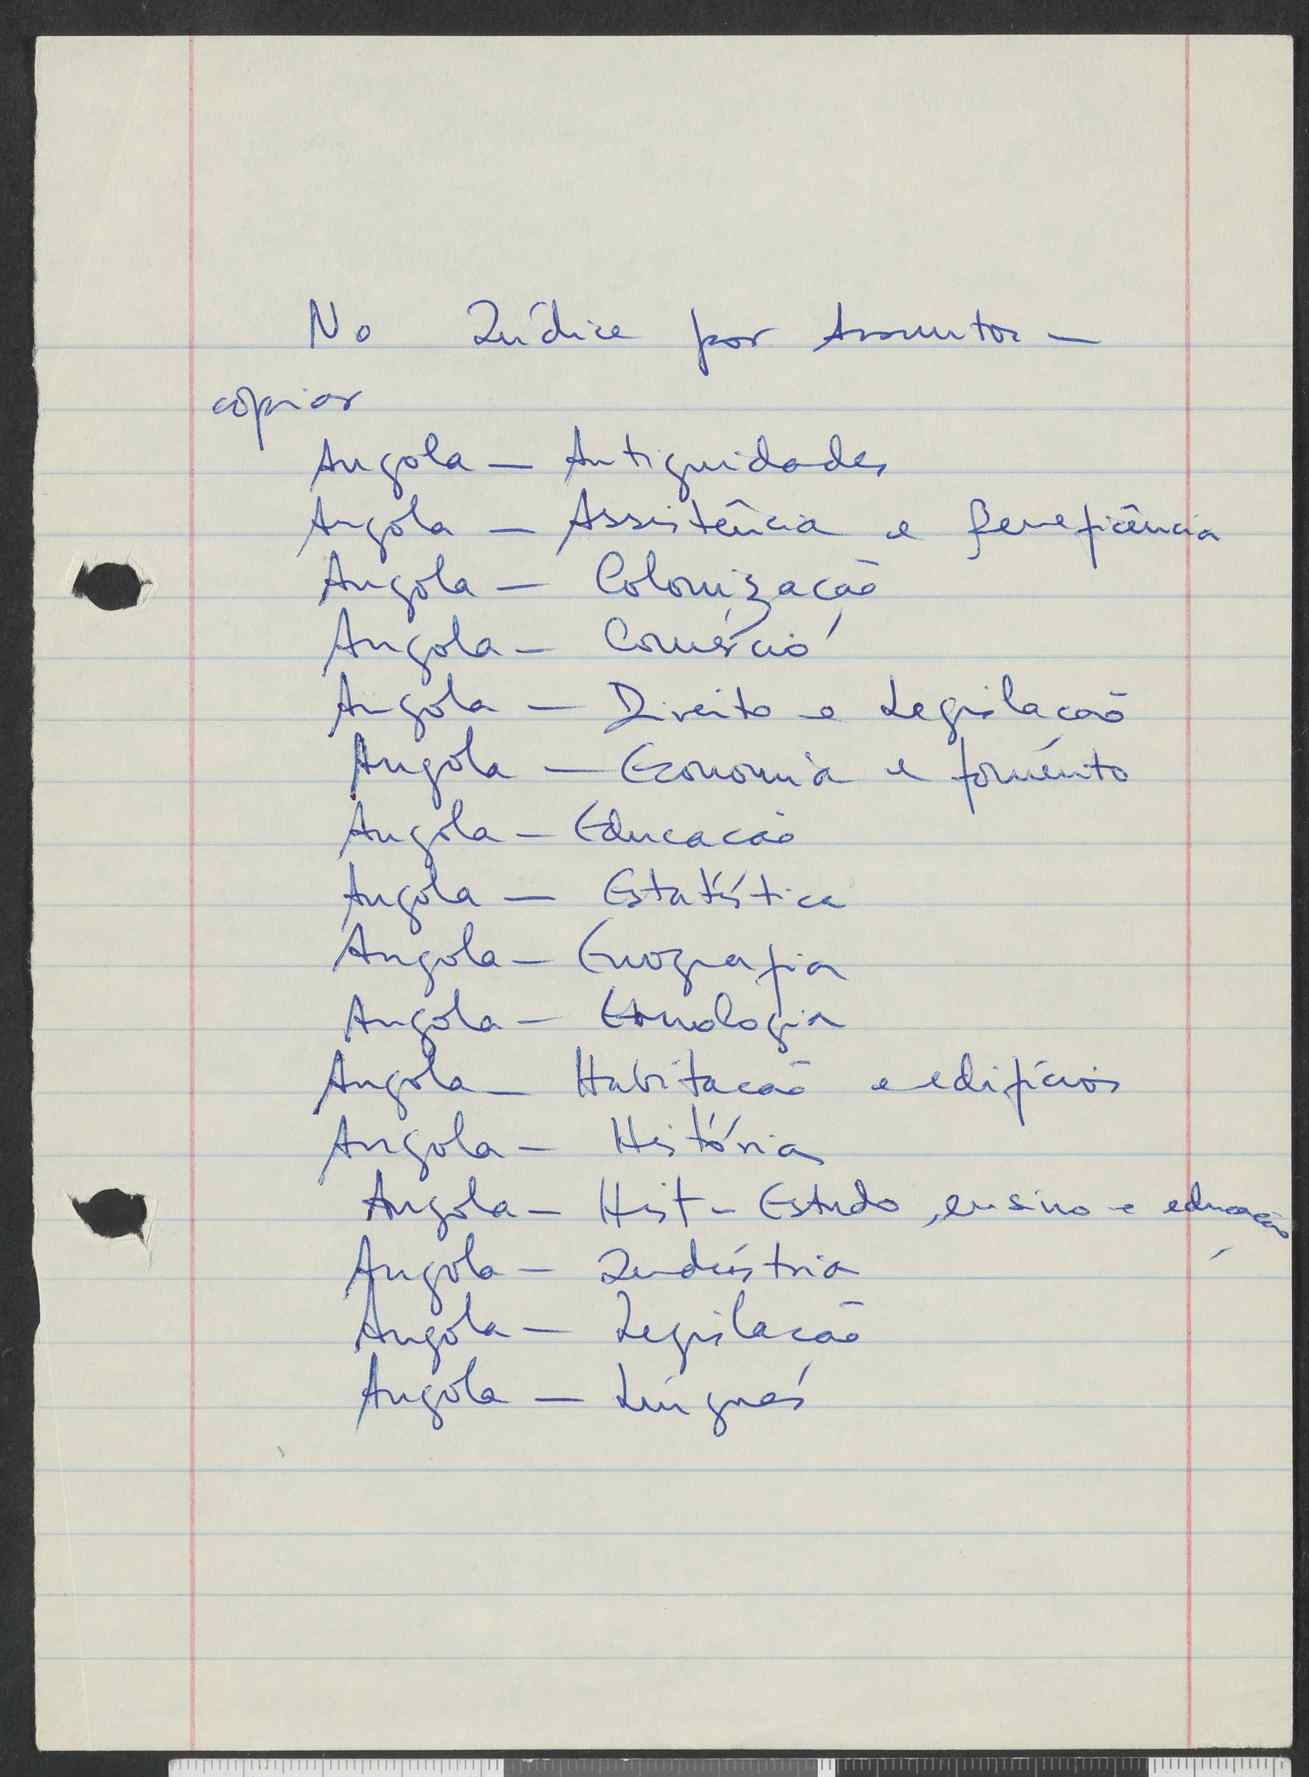 No Índice por Assuntos —
copiar
Angola — Antiguidades
Angola — Assistência e Beneficência
Angola — Colonização
Angola — Comércio
Angola — Direito e Legislação
Angola — Economia e fomento
Angola — Educação
Angola — Estatística
Angola — Etnografia
Angola — Etnologia
Angola — Habitação e edifícios
Angola — História
Angola — Hist - Estudo, ensino e educação
Angola — Indústria
Angola — Legislação
Angola — Línguas